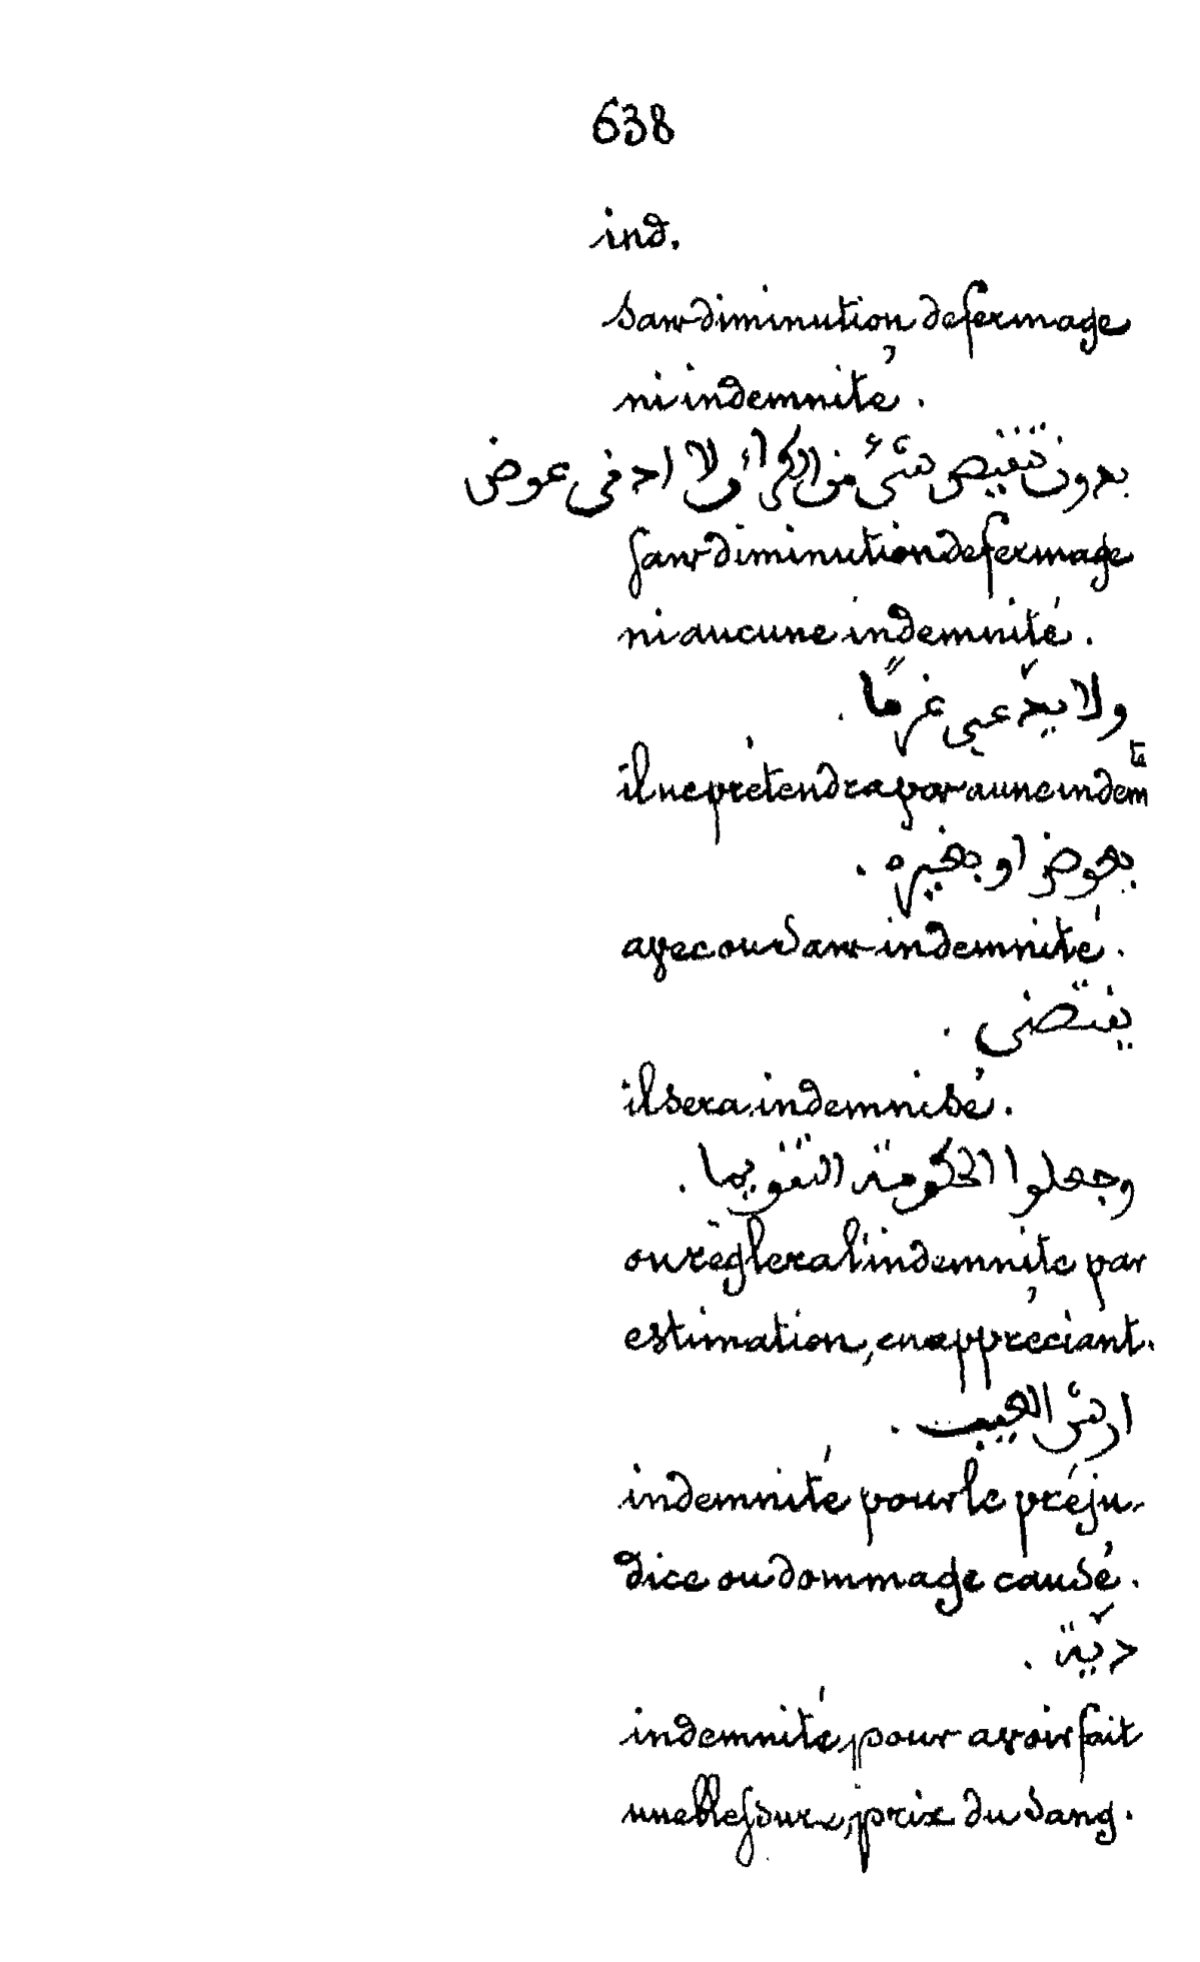 638
ind.
sans diminution de fermage
ni indemnité.
بدون تنقيص شئ من الكراء ولا ادنى عوض
sans diminution de fermage
ni aucune indemnité.
ولا يدّعى غرمًا.
il ne prétendra pas à une indem^té
بعوض او بغيره.
avec ou sans indemnité.
يقتضى.
il sera indemnisé.
وجعلوا الحكومة التقويما.
on règlera l'indemnité par
estimation, en appréciant.
ارش العيب.
indemnité pour le préju-
dice ou dommage causé.
ديّة.
indemnité, pour avoir fait
une blessure, prix du sang.